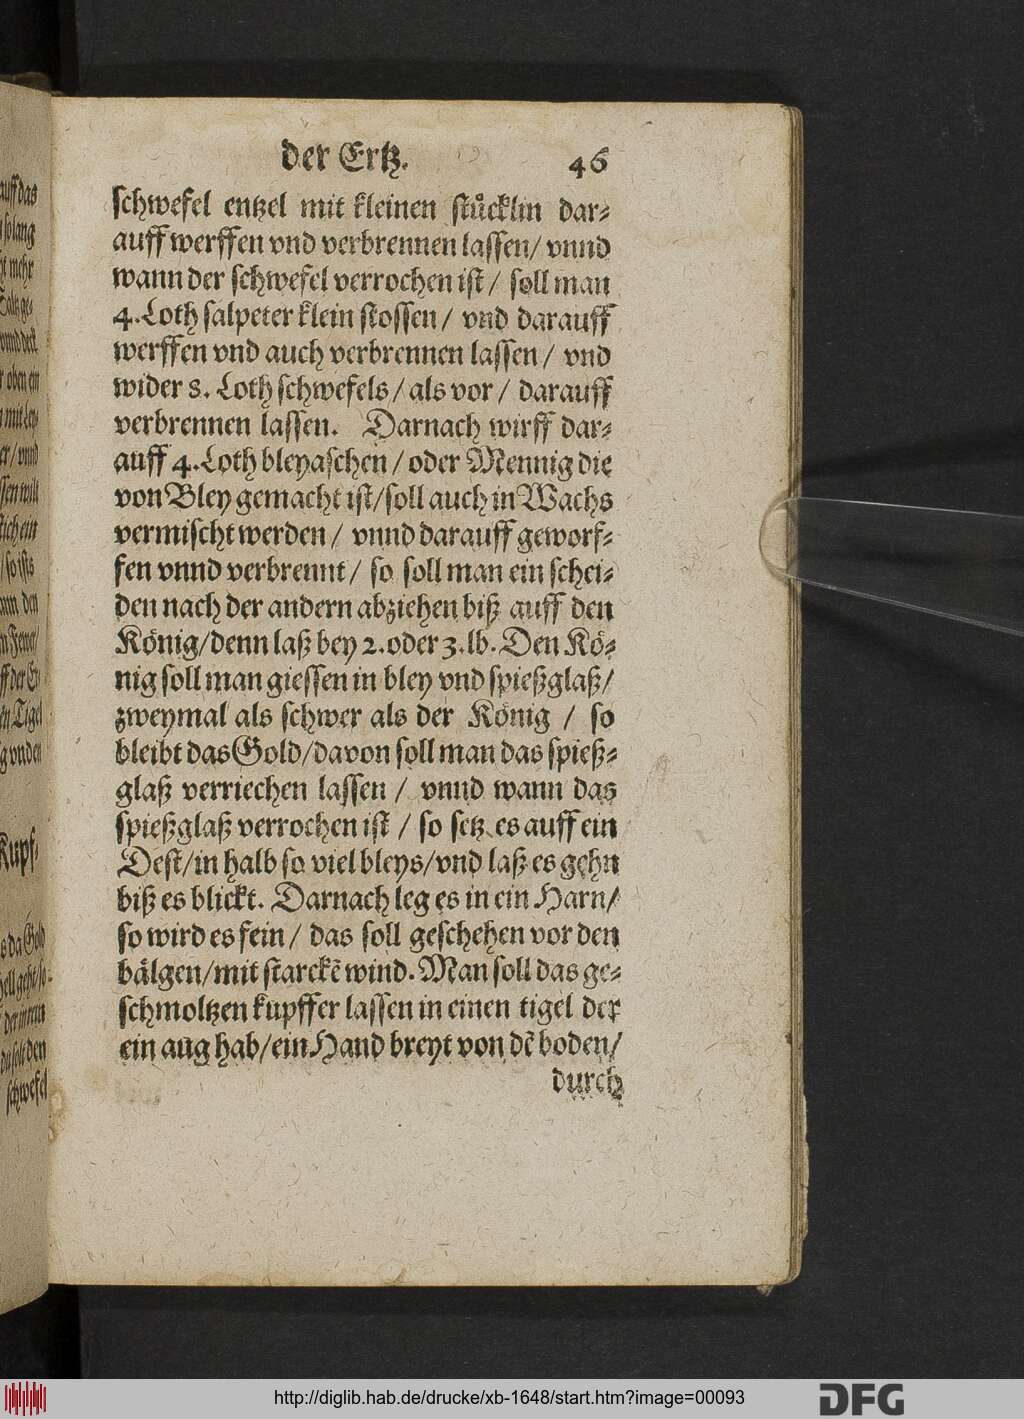 der Ertz. 46
schwefel entzel mit kleinen stuͤcklin dar⸗
auff werffen vnd verbrennen lassen/ vnnd
wann der schwefel verrochen ist/ soll man
4. Loth salpeter klein stossen/ vnd darauff
werffen vnd auch verbrennen lassen/ vnd
wider 8. Loth schwefels/ als vor/ darauff
verbrennen lassen. Darnach wirff dar⸗
auff 4. Loth bleyaschen/ oder Mennig die
von Bley gemacht ist/ soll auch in Wachs
vermischt werden/ vnnd darauff geworf⸗
fen vnnd verbrennt/ so soll man ein schei⸗
den nach der andern abziehen biß auff den
König/ denn laß bey 2. oder 3. lb. Den Kö⸗
nig soll man giessen in bley vnd spießglaß/
zweymal als schwer als der König / so
bleibt das Gold/ davon soll man das spieß⸗
glaß verriechen lassen / vnnd wann das
spießglaß verrochen ist / so setz es auff ein
Dest/ in halb so viel bleys/ vnd laß es gehn
biß es blickt. Darnach leg es in ein Harn/
so wird es fein/ das soll geschehen vor den
bälgen/ mit starckẽ wind. Man soll das ge⸗
schmoltzen kupffer lassen in einen tigel der
ein aug hab/ ein Hand breyt von dẽ boden/
durch
auff das
solang
mehr
oben ein
den
Tigel
Kupf⸗
da Gold
den
schwefel
http://diglib.hab.de/drucke/xb-1648/start.htm?image=00093
DFG